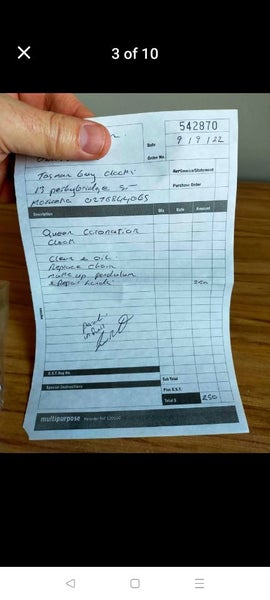 3 of 10
542870
Date 9/9/22
Order No.
Tasman Bay Clocks
Invoice/Statement
Purchase Order
Motueka 0276844065
Description Qty Rate Amount
Queen Coronation
Clock
Clean & Oil.
Replace Chain
make up pendulum
& Repair hands. 250
paid
in full
G.S.T. Reg No.
Sub Total
Special Instructions
Plus G.S.T.
Total $ 250
multipurpose